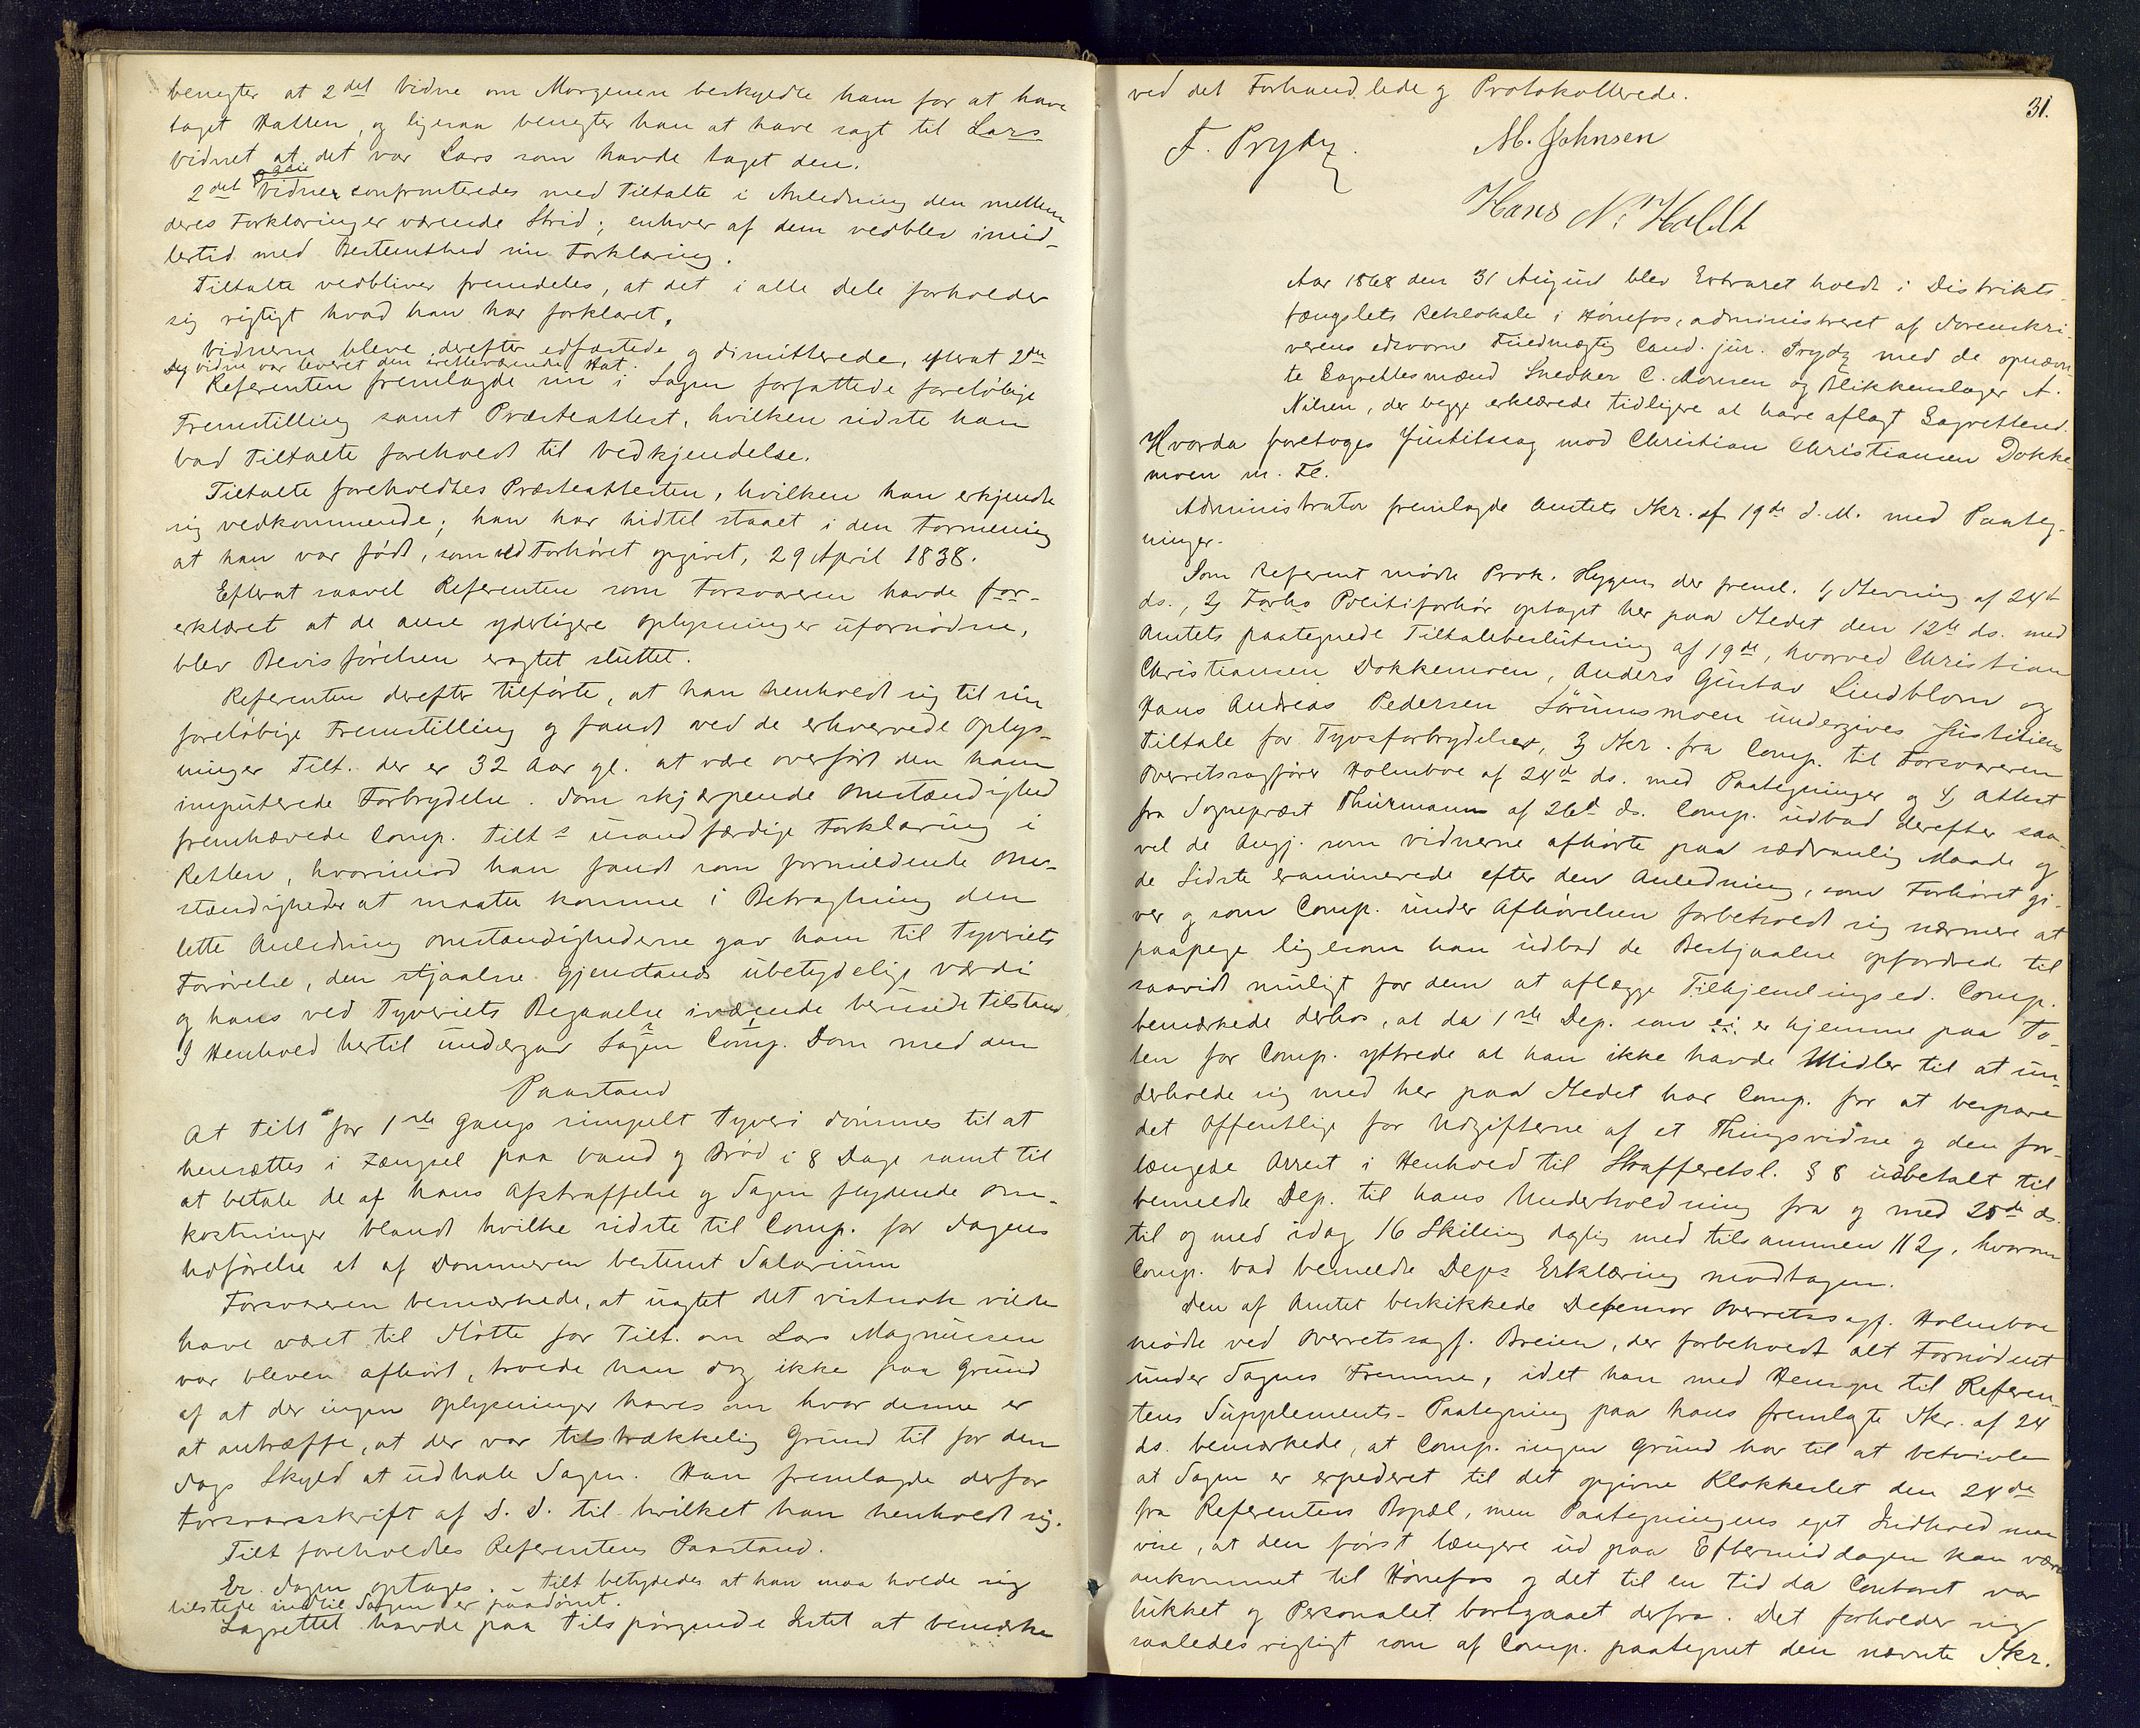 benegter at 2det Vidne om Morgenen beskyldte ham for at have
taget Hatten, og ligesaa benegter han at have sagt til Lars
Vidnet at det var Lars som havde taget den.
2det Vidne confronteredes med Tiltalte i Anledning den mellem
deres Forklaringer værende Strid; enhver af dem vedblev imid-
lertid med Bestemthed sin Forklaring.
Tiltalte vedbliver fremdeles, at det i alle Dele forholder
sig rigtigt hvad han har forklaret.
Vidnerne bleve derefter edfæstede og dimitterede, efterat 2det
Vidne var leveret den iretteværende Hat.
Referenten fremlagde nu i Sagen forfattede foreløbige
Fremstilling samt Præsteattest, hvilken sidste han
bad Tiltalte foreholdt til Vedkjendelse.
Tiltalte foreholdtes Præsteattesten, hvilken han erkjendte
sig vedkommende; han har hidtil staaet i den Formening
at han var født, som ved Forhøret opgivet, 29 April 1838.
Efterat saavel Referenten som Forsvareren havde for-
erklæret at de ansee yderligere Oplysninger ufornødne,
blev Bevisførelsen eragtet sluttet.
Referenten derefter tilførte, at han henholdt sig til sin
foreløbige Fremstilling og fandt ved de erhvervede Oplys-
ninger Tilt. der er 32 Aar gl. at være overført den ham
imputerede Forbrydelse. Som skjærpende Omstændighed
fremhævede Comp. Tilts usandfærdige Forklaring i
Retten, hvorimod han fandt som formildende Om-
stændigheder at maatte komme i Betragtning den
lette Anledning Omstændighederne gav ham til Tyveriets
Forøvelse, den stjaalne Gjenstands ubetydelige Værdi
og hans ved Tyveriets Begaaelse værende berusede Tilstand.
I Henhold hertil undergav Sagen Comp. Dom med den
Paastand
At Tilt for 1ste Gangs simpelt Tyveri dømmes til at
hensættes i Fængsel paa Vand og Brød i 8 Dage samt til
at betale de af hans Afstraffelse og Sagen flydende Om-
kostninger blandt hvilke sidste til Comp. for Sagens
Udførelse et af Dommeren bestemt Salærium
Forsvareren bemærkede, at uagtet det vistnok vilde
have været til Støtte for Tilt. om Lars Magnussen
var bleven afhørt, troede han dog ikke paa Grund
af at der ingen Oplysninger haves om hvor denne er
at antræffe, at der var tilstrækkelig Grund til for den
Sags Skyld at udhale Sagen. Han fremlagde derfor
Forsvarsskrift af D. D. til hvilket han henholdt sig.
Tilt foreholdtes Referentens Paastand.
Er. Sagen optages. – Tilt betydedes at han maa holde sig
tilstede indtil Sagen er paadømt.
Lagrettet havde paa Tilspørgende Intet at bemærke
31.
ved det Forhandlede og Protokollerede.
F. Prydz. M. Johnsen
Hans N. Holdt
Aar 1868 den 31 August blev Extraret holdt i Distrikts-
fængslets Retslokale i Hønefos, administreret af Sorenskri-
verens edsvorne Fuldmægtig Cand. jur. Prydz med de opnævn-
te Lagrettesmænd Snedker C. Monsen og Blikkenslager A.
Nilsen, der begge erklærede tidligere at have aflagt Lagretteed.
Hvorda foretoges Justitssag mod Christian Christiansen Dokke-
moen m. Fl.
Administrator fremlagde Amtets Skr. af 19de d. M. med Paateg-
ninger.
Som Referent mødte Prok. Hygen, der freml. 1, Stevning af 24de
ds., 2, Forhs Politiforhør optaget her paa Stedet den 12te ds. med
Amtets paategnede Tiltalebeslutning af 19de, hvorved Christian
Christiansen Dokkemoen, Anders Gustav Lindblom og
Hans Andreas Pedersen Sørumsmoen undergives Justitiens
Tiltale for Tyvsforbrydelser, 3, Skr. fra Comp. til Forsvareren
Overretssagfører Holmboe af 24de ds. med Paategninger og 4, Attest
fra Sognepræst Thurmann af 26d ds. Comp. udbad derefter saa-
vel de Angj. som Vidnerne afhørte paa sædvanlig Maade og
de Sidste examinerede efter den Anledning, som Forhøret gi-
ver og som Comp. under Afhørelsen forbeholdt sig nærmere at
paapege ligesom han udbad de Bestjaalne opfordrede til
saavidt muligt for dem at aflægge Tilhjemlingsed. Comp.
bemærkede derhos, at da 1ste Dep. som ei er hjemme paa To-
ten for Comp. yttrede at han ikke havde Midler til at un-
derholde sig med her paa Stedet har Comp. for at bespare
det Offentlige for Udgifterne af et Thingsvidne og den for-
længede Arrest i Henhold til Strafferetsl. § 8 udbetalt til
bemeldte Dep. til hans Underholdning fra og med 25de ds.
til og med idag 16 Skilling daglig med tilsammen 112 s, hvorom
Comp. bad bemeldte Deps Erklæring modtagen.
Den af Amtet beskikkede Defensor Overretssagf. Holmboe
mødte ved Overretssagf. Breien, der forbeholdt alt Fornødent
under Sagens Fremme, idet han med Hensyn til Referen-
tens Supplements-Paategning paa hans fremlagte Skr. af 24
ds. bemærkede, at Comp. ingen Grund har til at betvivle
at Sagen er expederet til det opgivne Klokkeslet den 24de
fra Referentens Bopæl, men Paategningens eget Indhold maa
vise, at den først længere ud paa Eftermiddagen kan være
ankommet til Hønefos og det til en Tid da Contoret var
lukket og Personalet bortgaaet derfra. Det forholder sig
saaledes rigtigt som af Comp. paategnet den nævnte Skr.